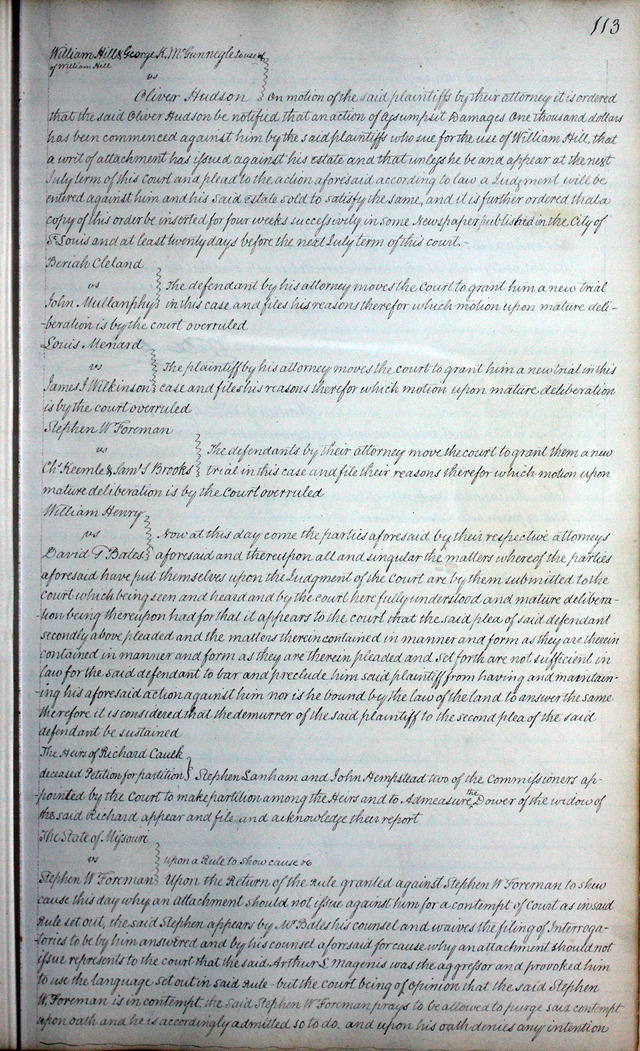 113
William Hill & George K. McGunnegle to use &
of William Hill
vs
Oliver Hudson On motion of the said plaintiffs by their attorney it is ordered
that the said Oliver Hudson be notified that an action of Assumpsit Damages One thousand dollars
has been commenced against him by the said plaintiffs who sue for the use of William Hill, that
a writ of attachment has issued against his estate and that unless he be and appear at the next
July term of this court and plead to the action aforesaid according to law a Judgment will be
entered against him and his said Estate sold to satisfy the same, and it is further ordered that a
copy of this order be inserted for four weeks successively in some Newspaper published in the City of
St Louis and at least twenty days before the next July term of this court.-
Beriah Cleland
vs The defendant by his attorney moves the Court to grant him a new trial
John Mullanphy in this case and files his reasons therefor which motion upon mature deli-
-beration is by the court overruled
Louis Menard
vs The plaintiff by his attorney moves the court to grant him a new trial in this
James J Wilkinson case and files his reasons therefor which motion upon mature deliberation
is by the court overruled
Stephen W Foreman
vs The defendants by their attorney move the court to grant them a new
Chs Keemle & Saml S Brooks trial in this case and file their reasons therefor which motion upon
mature deliberation is by the Court overruled
William Henry
vs Now at this day come the parties aforesaid by their respective attorneys
David G Bates aforesaid and thereupon all and singular the matters whereof the parties
aforesaid have put themselves upon the Judgment of the Court are by them submitted to the
court which being seen and heard and by the court here fully understood and mature delibera-
-tion being thereupon had for that it appears to the court that the said plea of said defendant
secondly above pleaded and the matters therein contained in manner and form as they are therein
contained in manner and form as they are therein pleaded and set forth are not sufficient in
law for the said defendant to bar and preclude him said plaintiff from having and maintain-
-ing his aforesaid action against him nor is he bound by the law of the land to answer the same
therefore it is considered that the demurrer of the said plaintiff to the second plea of the said
defendant be sustained
The Heirs of Richard Caulk
deceased Petition for partition Stephen Lanham and John Hempstead two of the Commissioners ap-
-pointed by the Court to make partition among the Heirs and to Admeasure the Dower of the widow of
the said Richard appear and file and acknowledge their report
The State of Missouri
vs upon a Rule to show cause &c
Stephen W Foreman Upon the Return of the Rule granted against Stephen W Foreman to shew
cause this day why an attachment should not issue against him for a contempt of Court as in said
Rule set out, the said Stephen appears by Mr Bates his counsel and waives the filing of Interroga-
-tories to be by him answered and by his counsel aforesaid for cause why an attachment should not
issue represents to the court that the said Arthur L. Magenis was the aggressor and provoked him
to use the language set out in said Rule - but the court being of opinion that the said Stephen
W. Foreman is in contempt the said Stephen W Foreman prays to be allowed to purge said contempt
upon oath and he is accordingly admitted so to do. and upon his oath denies any intention